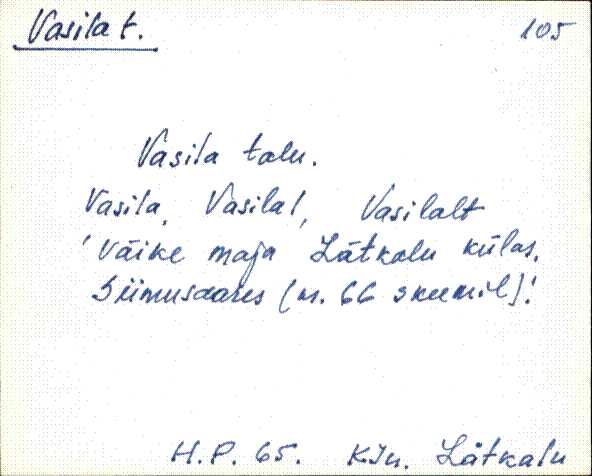 Vasila t.
105
Vasila talu.
Vasila, Vasilal, Vasilalt
'Väike maja Lätkalu külas,
Siimusaares (nr. 66 skeemil)!
H.P. 65. KJn. Lätkalu